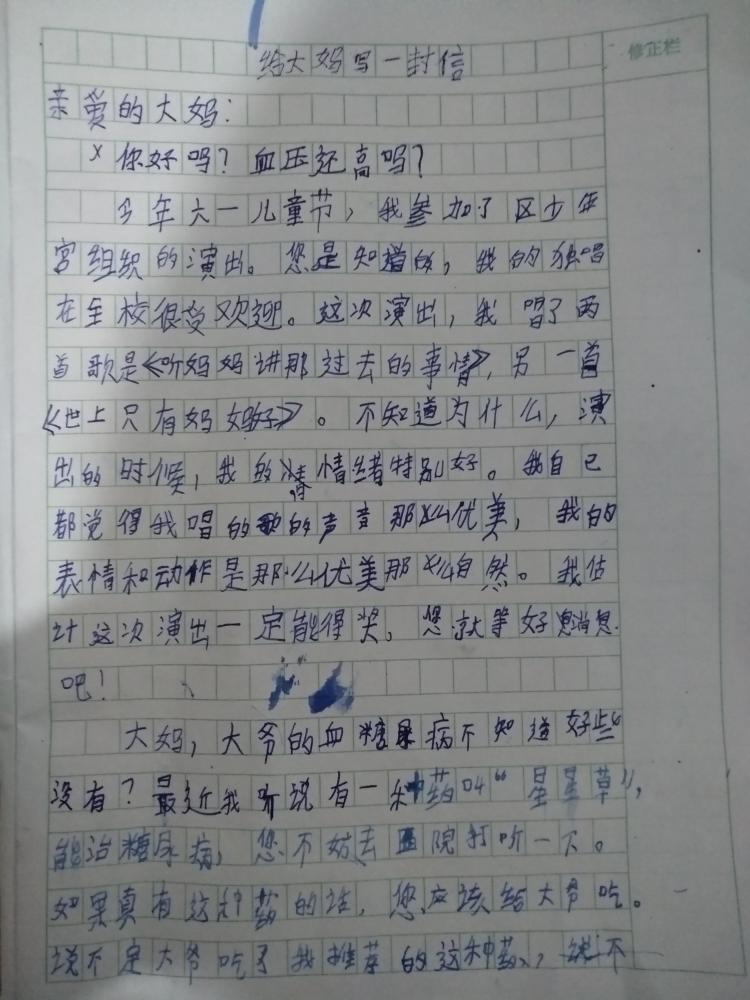 修正栏
给大妈写一封信
亲爱的大妈：
你好吗？血压还高吗？
今年六一儿童节，我参加了区少年
宫组织的演出。您是知道的，我的独唱
在全校很受欢迎。这次演出，我唱了两
首歌是《听妈妈讲那过去的事情》，另一首
《世上只有妈妈好》。不知道为什么，演
出的时候，我的情绪特别好。我自己
都觉得我唱的歌的声音那么优美，我的
表情和动作是那么优美那么自然。我估
计这次演出一定能得奖，您就等好消息
吧！
大妈，大爷的血糖尿病不知道好些
没有？最近我听说有一种药叫“星星草”，
能治糖尿病，您不妨去医院打听一下。
如果真有这种药的话，您应该给大爷吃。
说不定大爷吃了我推荐的这种药，